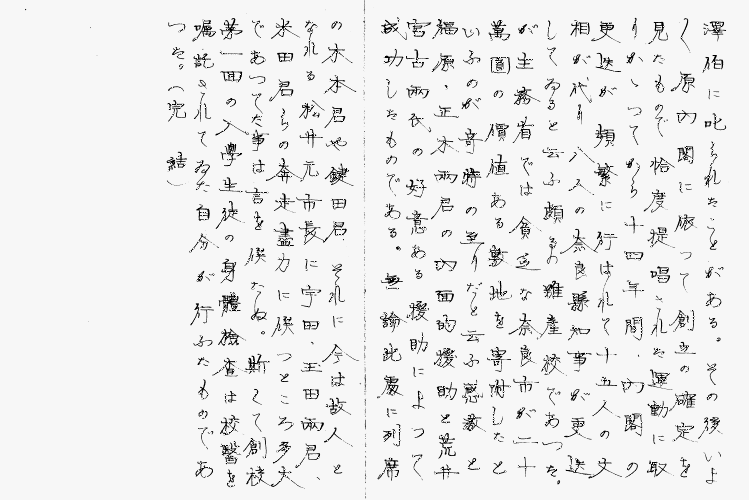 澤伯に叱られたことがある。その後いよ
く原内閣に依つて創立の確定を
見たもので恰度提唱された運動に取
りかゝつてから十四年間、内閣の
更迭が頻繁に行はれて十五人の文
相が代り八人の奈良縣知事が更迭
してゐると云ふ頗る難産校であつた。
が主務省では貧乏な奈良市が二十
萬圓の價値ある敷地を寄附したと
いふのが奇特の至りだと云ふ意教と
福原、正木両君の内面的援助と荒井
宮古両氏の好意ある援助によつて
成功したものである。無論此處に列席
の木本君や鍵田君、それに今は故人と
なれる松井元市長に宇田、玉田両君、
米田君らの奔走盡力に俟つところ多大
であつた事は言を俟たぬ。斯くて創校
第一回の入學生徒の身體檢査は校醫を
嘱託されてゐた自分が行ふたものであ
つた。（完結）